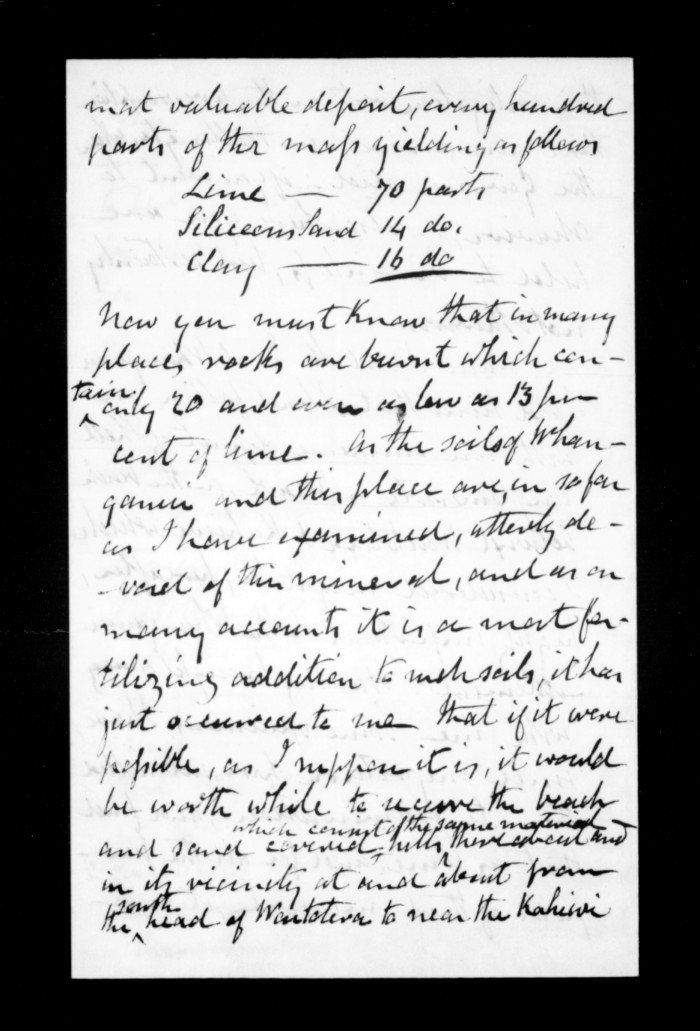 most valuable deposit, every hundred
parts of the mass yielding as follows
Lime — 70 parts
Siliceous Sand 14 do.
Clay — 16 do
Now you must know that in many
places rocks are burnt which con-
tain only 20 and even as low as 13 per
cent of lime. As the soils of Whan-
ganui and this place are, in so far
as I have examined, utterly de-
void of this mineral, and as on
many accounts it is a most fer-
tilizing addition to such soils, it has
just occurred to me that if it were
possible, as I suppose it is, it would
be worth while to secure the beach
which consist of the same material
and sand covered hills, thereabout and
in its vicinity at and about from
the south head of Waitotara to near the Kahiwi